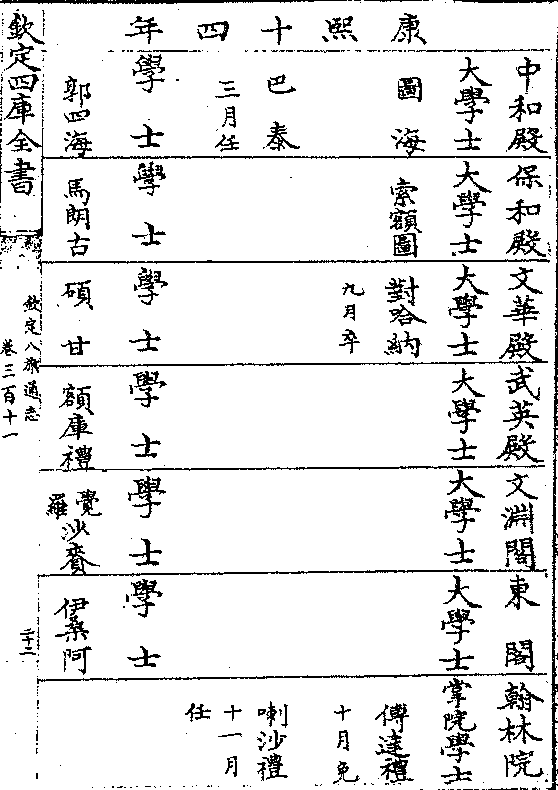 康熙十四年
中和殿
大學士
圖海
巴泰
三月任
學士
郭四海
保和殿
大學士
索額圖
學士
馬朗古
文華殿
大學士
對哈納
九月卒
學士
碩甘
武英殿
大學士
學士
額庫禮
文淵閣
大學士
學士
覺羅沙賚
東閣
大學士
學士
伊桑阿
翰林院
掌院學士
傅達禮
十月免
喇沙禮
十一月任
欽定四庫全書
欽定八旗通志
卷三百十一
二十二